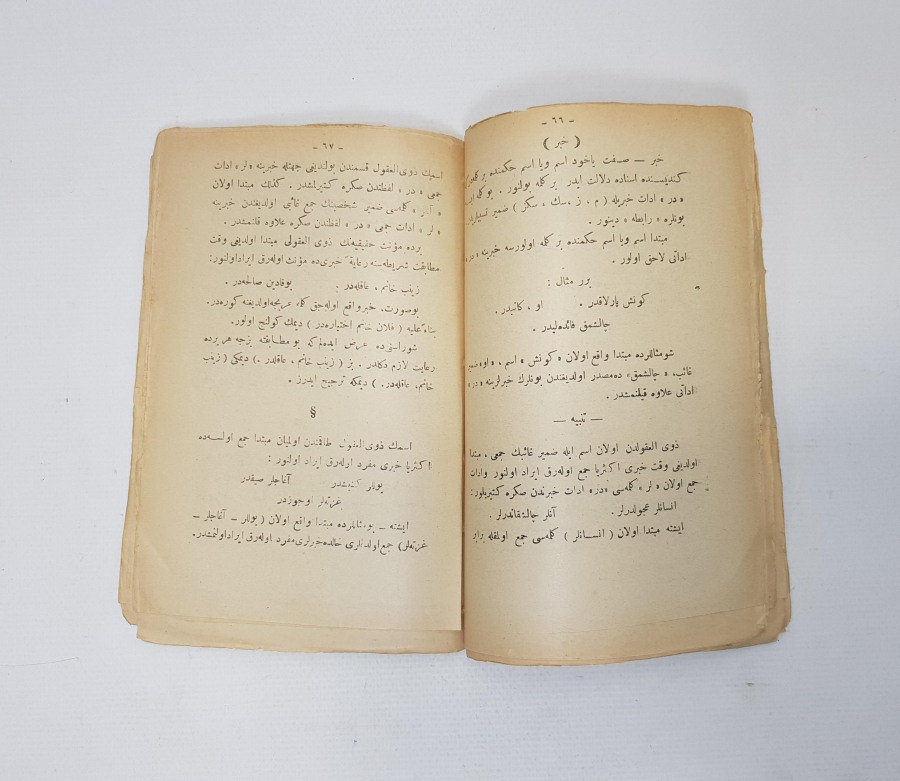 - ٦٦ -
( خبر )
خبر — صفت ياخود اسم ويا اسم حكمنده بر كلمه‌در
كنديسنده اسناده دلالت ايدر بر كلمه بولنور . بو كلمه‌ايله
« در » ادات خبريله ( م ، ز ، سك ، سكز ) ضمير
بونلره « رابطه » دينور .
مبتدا اسم ويا اسم حكمنده بر كلمه اولورسه خبرينه « در »
اداتى لاحق اولور .
برر مثال :
كونش پارلاقدر . او ، كاتبدر .
چالشمق فائده‌ليدر .
شو مثاللرده مبتدا واقع اولان « كونش » اسم ، « او » ضمير
غائب ، « چالشمق » ده مصدر اولديغندن بونلرك خبرلرينه « در »
اداتى علاوه قيلنمشدر .
— تنبيه —
ذوى العقولدن اولان اسم ايله ضمير غائبك جمعى ، مبتدا
اولدينى وقت خبرى اكثريا جمع اوله‌رق ايراد اولنور وادات
جمع اولان « لر » كلمه‌سى « در » ادات خبرندن صكره كتيريلور :
انسانلر عجولدرلر . آنلر چالشقاندرلر .
ايشته مبتدا اولان ( انسانلر ) كلمه‌سى جمع اولمقله برابر
- ٦٧ -
اسمك ذوى العقول قسمندن بولنديغى جهتله خبرينه « لر » ادات
جمعى « در » لفظندن صكره كتيرلمشدر . كذلك مبتدا اولان
« آنلر » كلمه‌سى ضمير شخصينك جمع غائبى اولديغندن خبرينه
« لر » ادات جمعى « در » لفظندن صكره علاوه قلنمشدر .
برده مؤنث حقيقينك ذوى العقولى مبتدا اولدينى وقت
مطابقت شريطه‌سنه رعايةً خبرى‌ده مؤنث اوله‌رق ايراد اولنور :
زينب خانم ، عاقله‌در . بوقادين صالحه‌در .
بوصورت ، خبر واقع اوله‌جق كلمه عربجه اولديغنه كوره‌در .
بناءً عليه ( فلان خانم اختياره‌در ) ديمك كولنج اولور .
شوراسنى‌ده عرض ايده‌لم كه بو مطابقته بزجه هر يرده
رعايت لازم دكلدر . بز ( زينب خانم ، عاقلدر . ) ديمكى ( زينب
خانم ، عاقله‌در . ) ديمكه ترجيح ايدرز .
§
اسمك ذوى العقول طاقندن اولميان مبتدا جمع اولسه‌ده
اكثريا خبرى مفرد اوله‌رق ايراد اولنور :
يوللر كنيشدر آغاجلر صيقدر
غزته‌لر اوجوزدر
ايشته — بو مثاللرده مبتدا واقع اولان ( يوللر — آغاجلر —
غزته‌لر ) جمع اولدقلرى حالده خبرلرى مفرد اوله‌رق ايراد اولنمشدر .